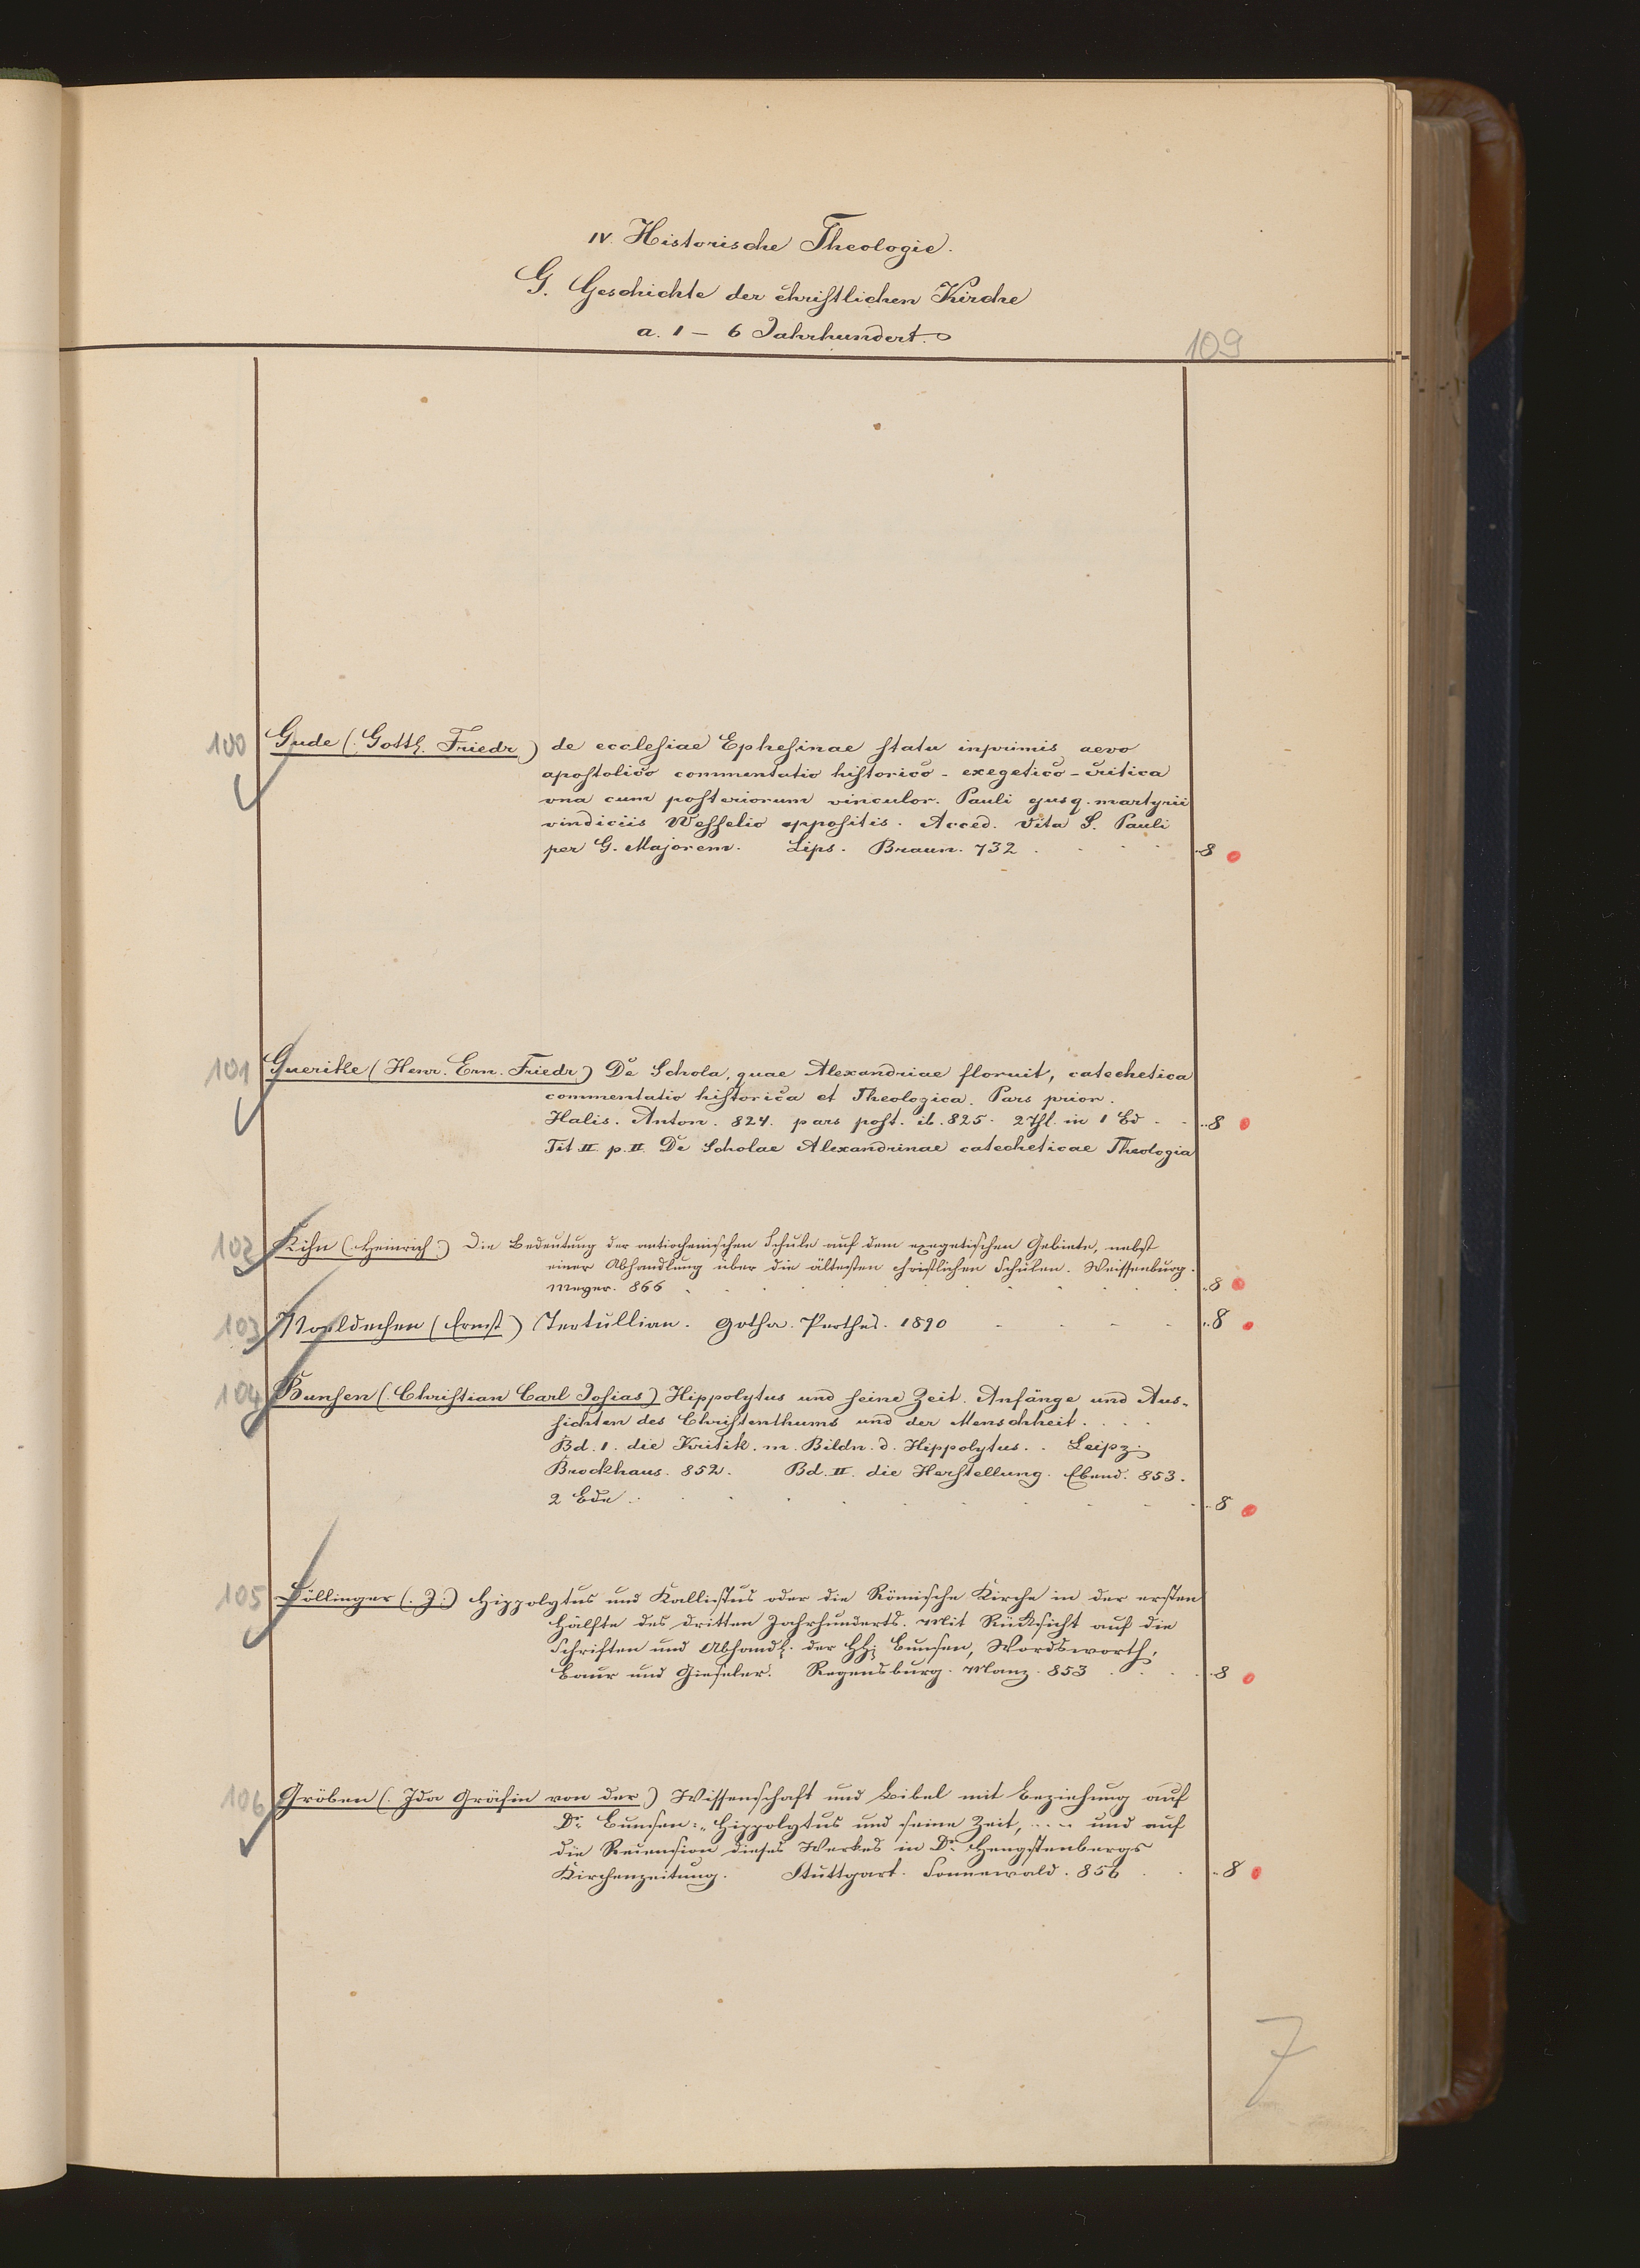 IV. Historische Theologie.
G. Geschichte der christlichen Kirche
a. 1 – 6 Jahrhundert.
109
100 Gude (Gotth. Friedr) de ecclesiae Ephesinae statu inprimis aevo
apostolico commentatio historico - exegetico - critica
una cum posteriorum vinculor. Pauli ejusq. martyrii
vindiciis Wesselio oppositis. Acced. Vita S. Pauli
per G. Majorem. Lips. Braun. 732 . 8
101 Guerike (Henr. Ern. Friedr) De Schola, quae Alexandriae floruit, catechetica
commentatio historica et Theologica. Pars prior.
Halis. Anton. 824. pars post. ib. 825. 2 Thl. in 1 Bd . . 8
Tit. II. p. II. De Scholae Alexandrinae catecheticae Theologia
102 Kihn (Heinrich.) Die Bedeutung der antiochenischen Schule auf dem exegetischen Gebiete, nebst
einer Abhandlung über die ältesten christlichen Schulen. Weissenburg.
Meyer. 866 . 8
103 Noeldechen (Ernst) Tertullian. Gotha. Perthes. 1890 . 8
104 Bunsen (Christian Carl Josias) Hippolytus und seine Zeit. Anfänge und Aus-
sichten des Christenthums und der Menschheit. . .
Bd. 1. die Kritik. m. Bildn. d. Hippolytus. . Leipz.
Brockhaus. 852. Bd. II. die Herstellung. Ebend. 853.
2 Bde . 8
105 Döllinger (. J.) Hippolytus und Kallistus oder die Römische Kirche in der ersten
Hälfte des dritten Jahrhunderts. Mit Rücksicht auf die
Schriften und Abhandl. der HH. Bunsen, Wordsworth,
Baur und Gieseler. Regensburg. Manz. 853 . 8
106 Gröben (. Ida Gräfin von der) Wissenschaft und Bibel mit Beziehung auf
Dr. Bunsen: „Hippolytus und seine Zeit, . . . . und auf
die Recension dieses Werkes in Dr. Hengstenbergs
Kirchenzeitung. Stuttgart. Sonnewald. 856 . 8
7